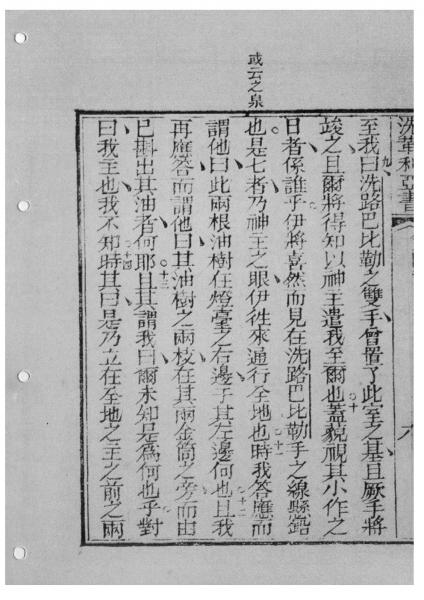 洗革利亞書
至我曰九洗路巴比勒之雙手曾置了此室之基且厥手將
竣之且爾將得知以神主遣我至爾也十蓋藐視其小作之
日者係誰乎伊將喜然而見在洗路巴比勒手之線懸鉛
或云之泉
也是七者乃神主之眼伊徃來通行全地也十一時我答應而
謂他曰此兩根油樹在燈臺之右邊于其左邊何也十二且我
再應答而謂他曰其油樹之兩枝在其兩金筒之旁而由
已斟出其油者何耶十三且其謂我曰爾未知是爲何也予對
曰我主也我不知十四時其曰是乃立在至地之主之前之兩